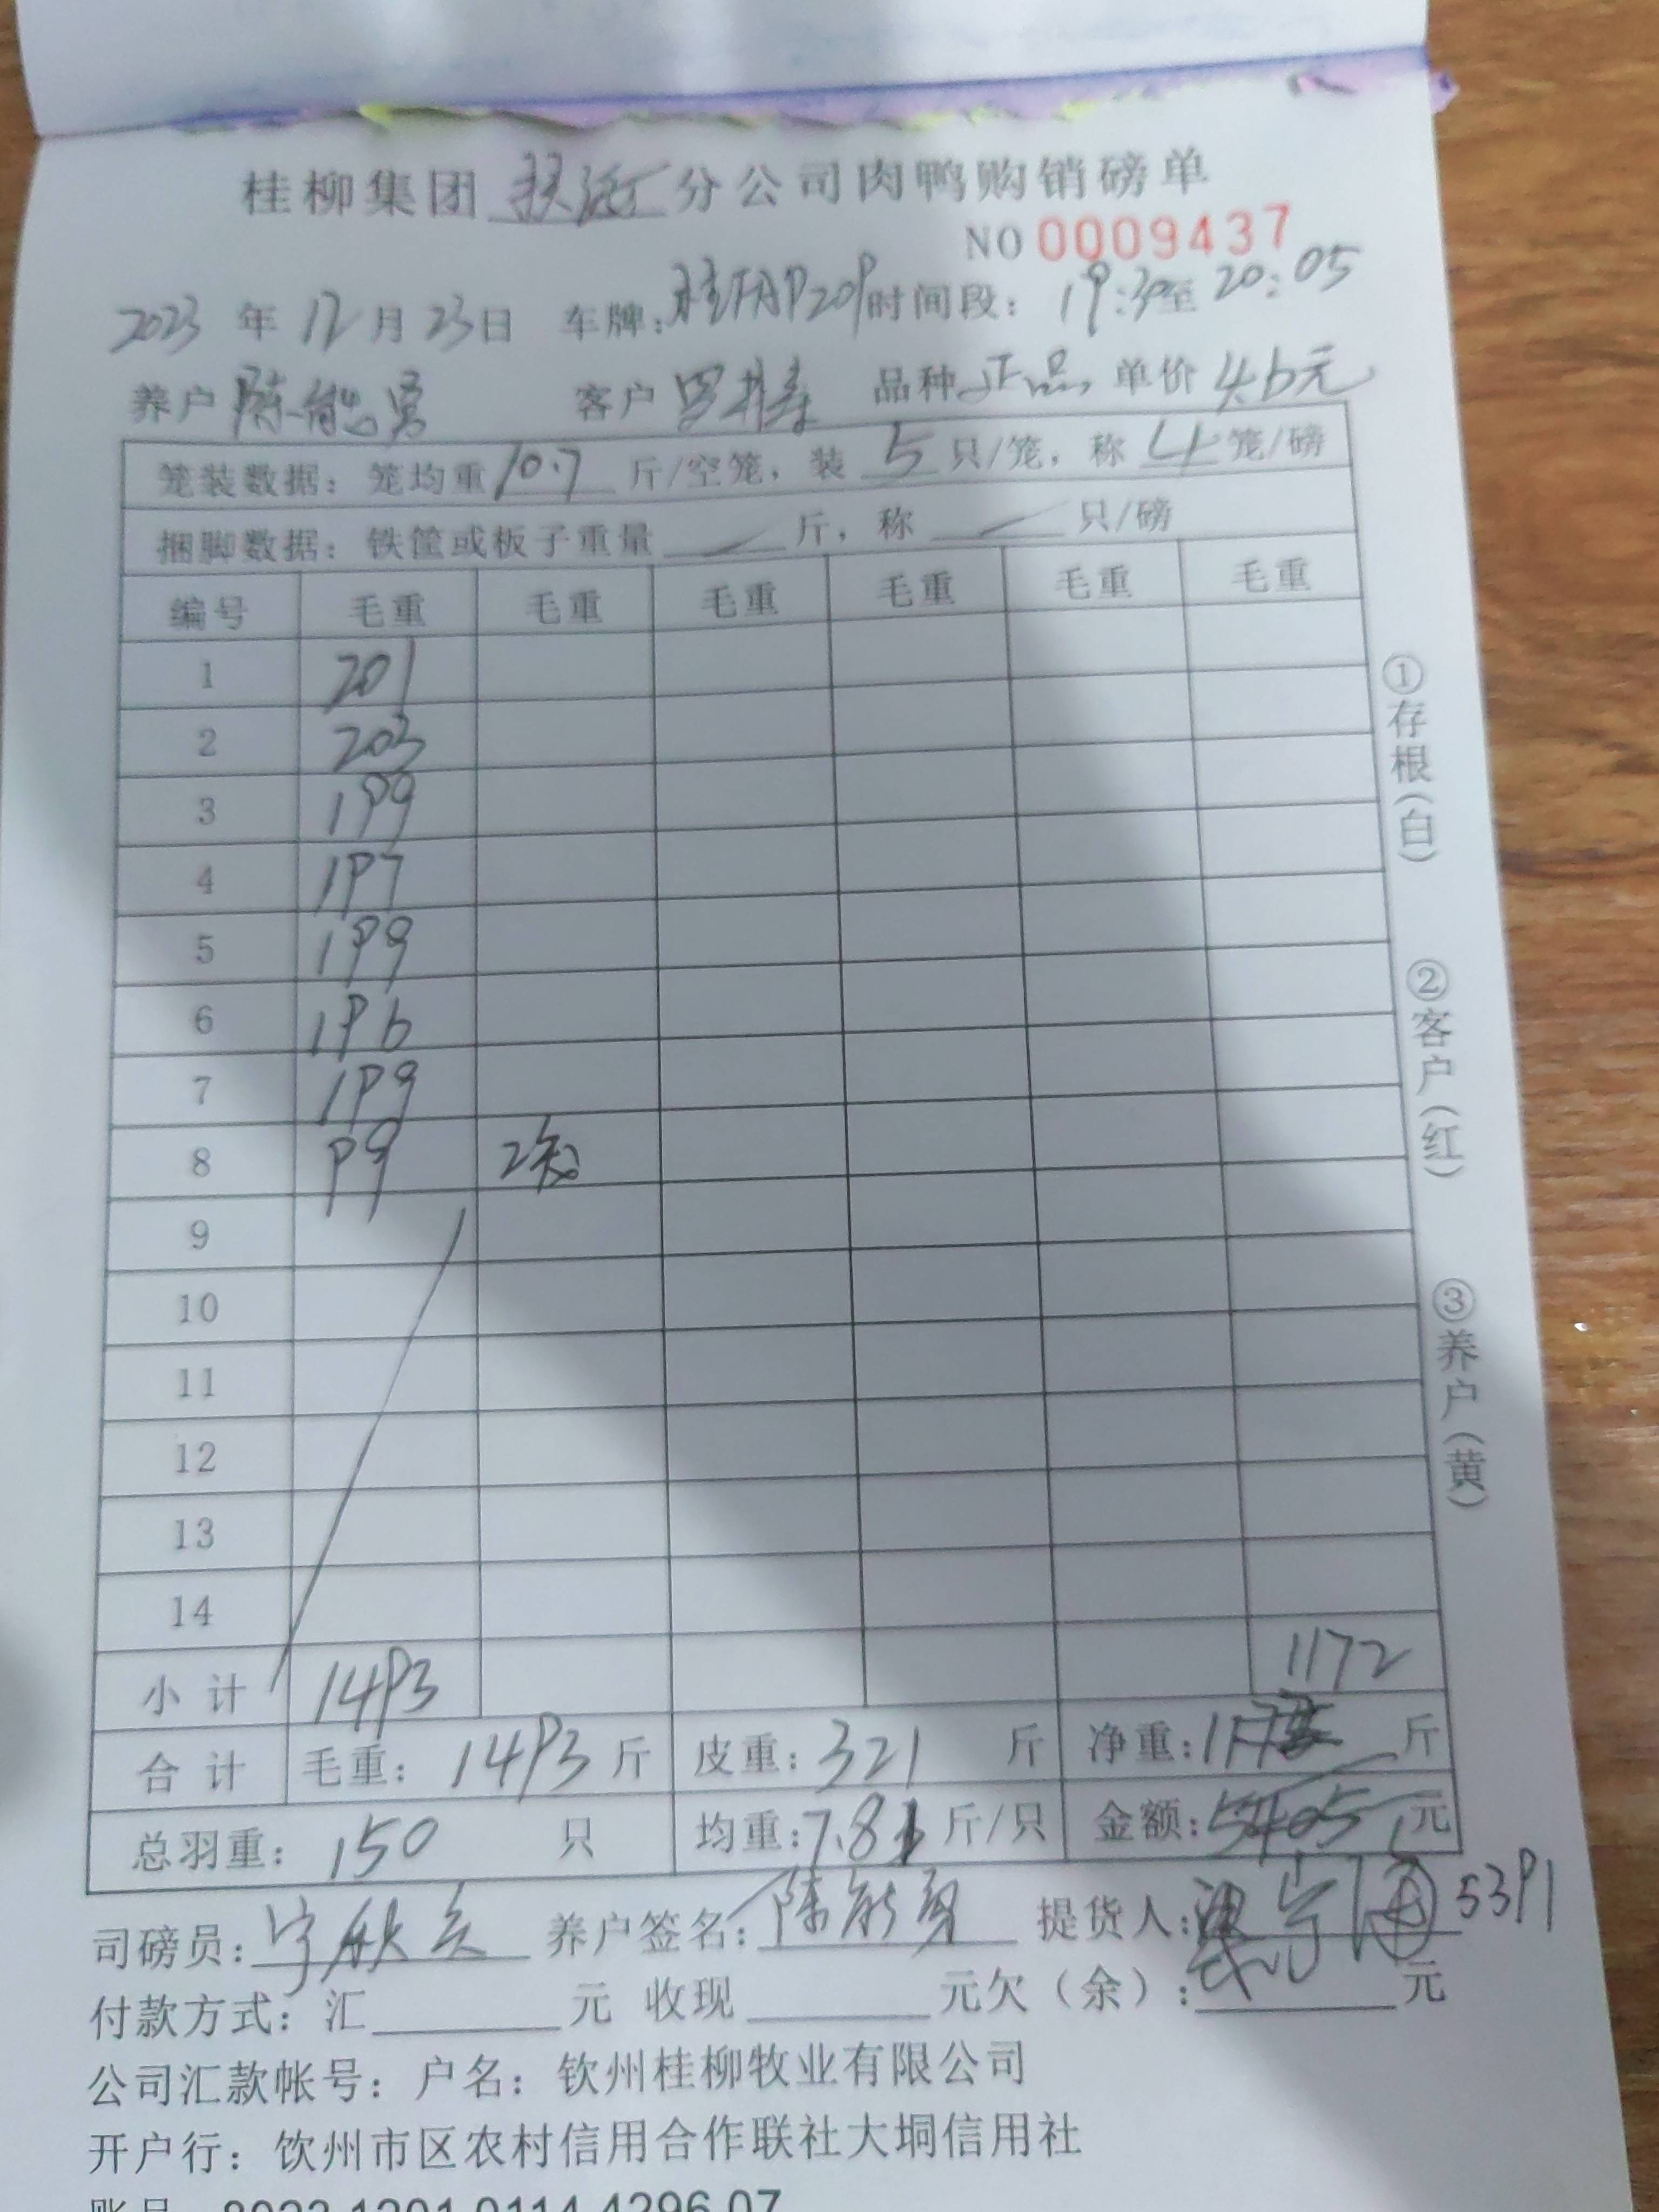 桂柳集团扶浙分公司肉鸭购销磅单
NO 0009437
2023年12月23日 车牌:桂FAP209时间段: 19:30至20:05
养户 陈能勇 客户 罗 品种 正品 单价 4.6元
笼装数据: 笼均重10.7斤/空笼, 装5只/笼, 称4笼/磅
捆脚数据: 铁筐或板子重量 斤, 称 只/磅
编号 毛重 毛重 毛重 毛重 毛重 毛重
1 201
2 203
3 199
4 197
5 199
6 196
7 199
8 99 2笼
9
10
11
12
13
14
小计 1493 1172
合计 毛重: 1493斤 皮重: 321斤 净重: 斤
总羽重: 150只 均重:7.81斤/只 金额:5405元
5391
司磅员: 宁秋 养户签名: 陈能勇 提货人:
付款方式: 汇 元 收现 元欠(余): 元
公司汇款帐号: 户名: 钦州桂柳牧业有限公司
开户行: 饮州市区农村信用合作联社大垌信用社
账号 8023 1201 0114 4296 07
①存根(白) ②客户(红) ③养户(黄)